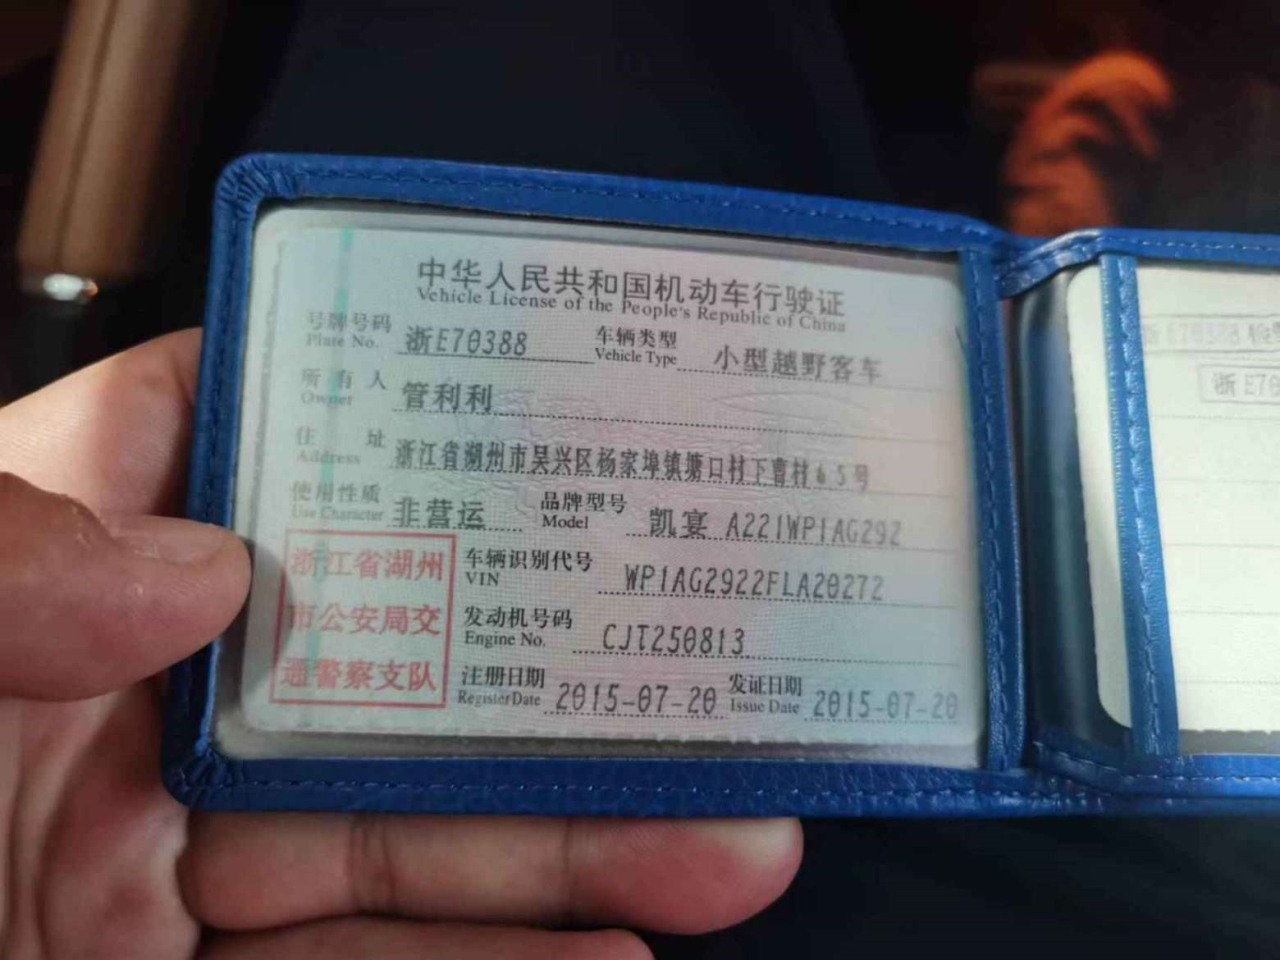 中华人民共和国机动车行驶证
Vehicle License of the People's Republic of China
号牌号码 浙E70388 车辆类型 小型越野客车
Plate No. Vehicle Type
所有人 管利利
Owner
住址 浙江省湖州市吴兴区杨家埠镇塘口村下曹村65号
Address
使用性质 非营运 品牌型号 凯宴 A221WP1AG292
Use Character Model
浙江省湖州
市公安局交
通警察支队
车辆识别代号 WP1AG2922FLA20272
VIN
发动机号码 CJT250813
Engine No.
注册日期 2015-07-20 发证日期 2015-07-20
Register Date Issue Date
浙E70388
浙E70